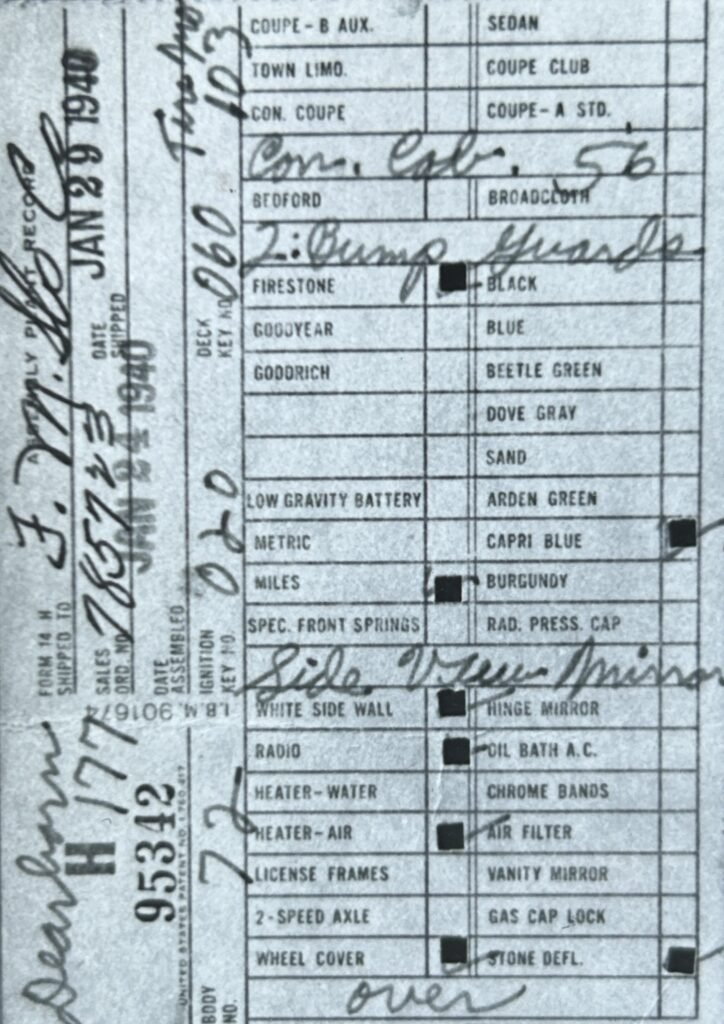 COUPE - B AUX. SEDAN
TOWN LIMO. COUPE CLUB
CON. COUPE COUPE - A STD.
Con. Cab. 56
BEDFORD BROADCLOTH
2: Bump Guards
FIRESTONE BLACK
GOODYEAR BLUE
GOODRICH BEETLE GREEN
DOVE GRAY
SAND
LOW GRAVITY BATTERY ARDEN GREEN
METRIC CAPRI BLUE
MILES BURGUNDY
SPEC. FRONT SPRINGS RAD. PRESS. CAP
Side View Mirror
WHITE SIDE WALL HINGE MIRROR
RADIO OIL BATH A.C.
HEATER-WATER CHROME BANDS
HEATER-AIR AIR FILTER
LICENSE FRAMES VANITY MIRROR
2-SPEED AXLE GAS CAP LOCK
WHEEL COVER STONE DEFL.
over
ASSEMBLY PLANT RECORD
Dearborn
FORM 14 H
SHIPPED TO F. M.
H 177
SALES ORD. NO. 785723
DATE SHIPPED JAN 29 1940
I.B.M. 901674
95342
DATE ASSEMBLED JAN 24 1940
UNITED STATES PATENT NO. 1,780,417
BODY NO. 72
IGNITION KEY NO. 020
DECK KEY NO. 060
103